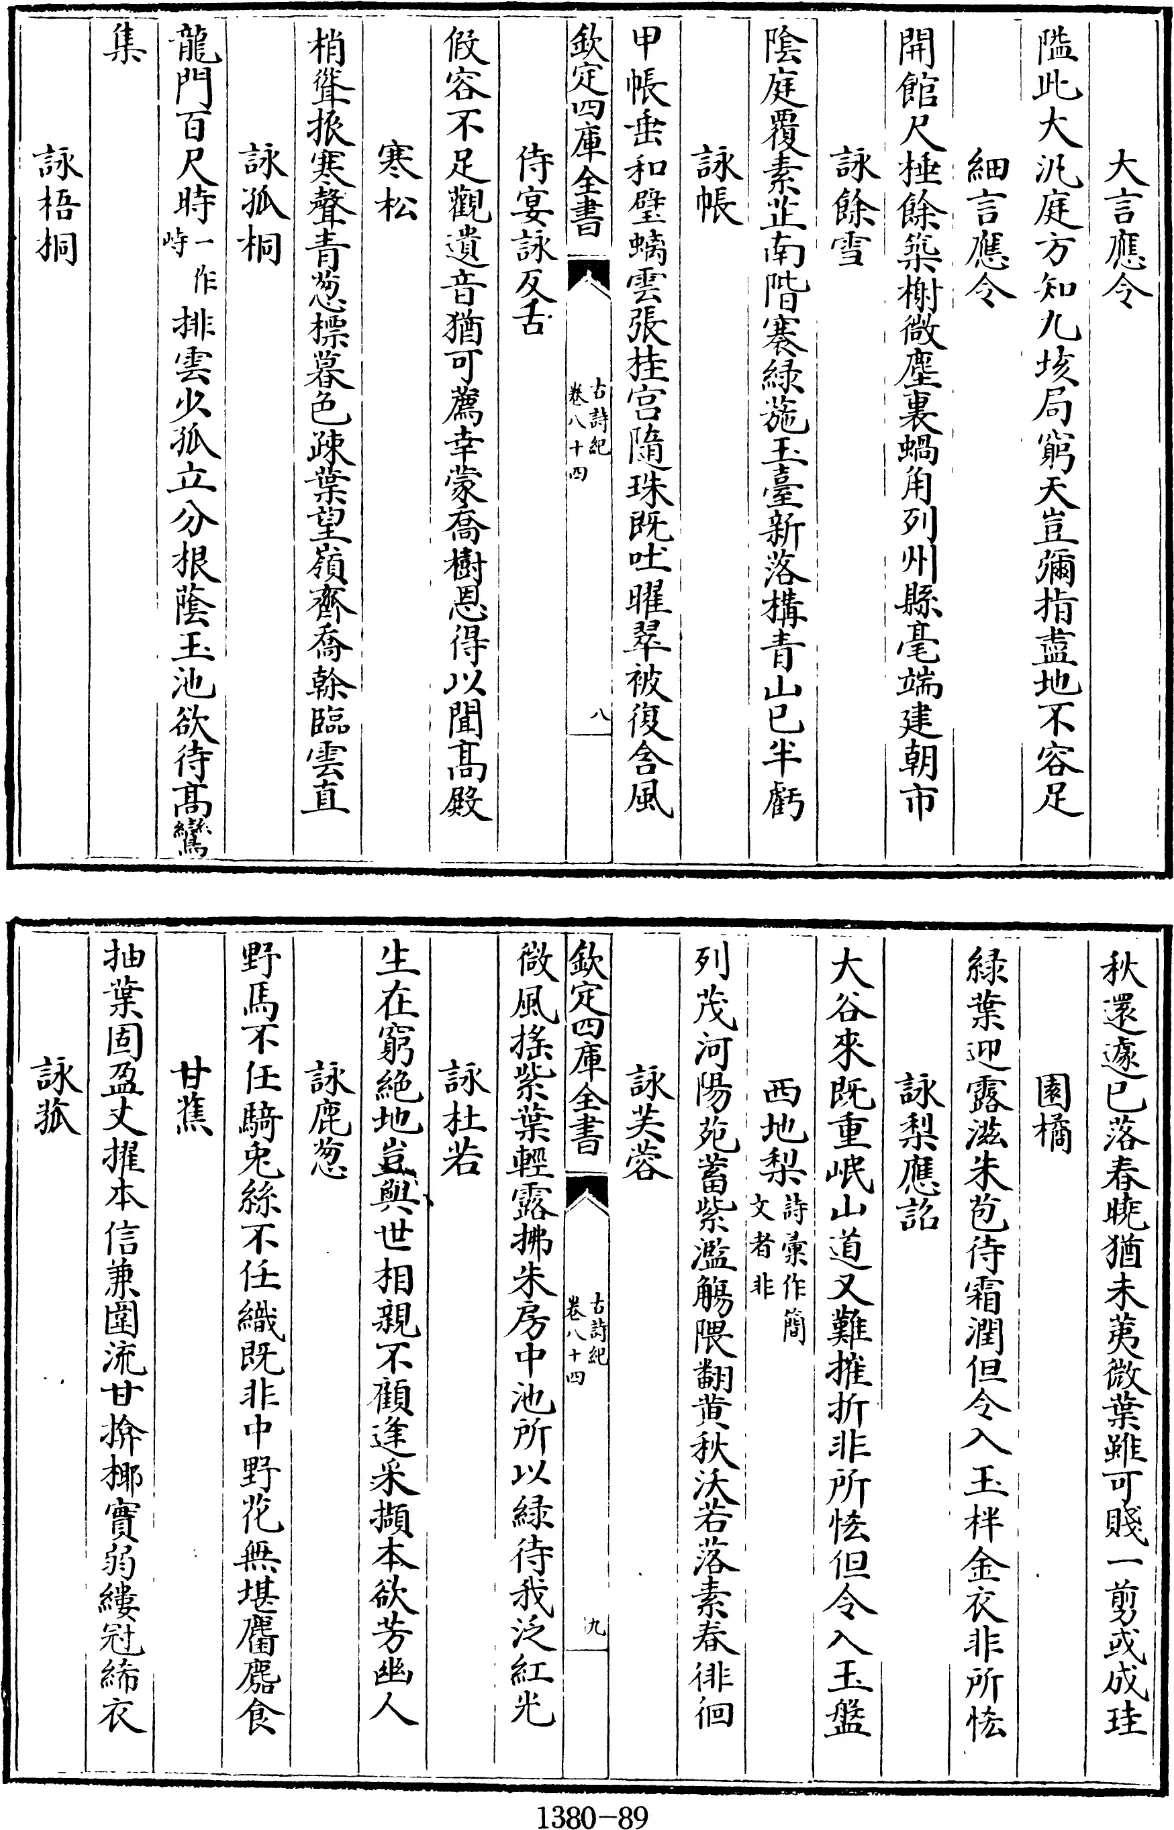 大言應令
隘此大汎庭方知九垓局窮天豈彌指盡地不容足
細言應令
開館尺棰餘築榭微塵裏蝸角列州縣毫端建朝市
詠餘雪
陰庭覆素芷南階褰綠葹玉臺新落構青山已半虧
詠帳
甲帳垂和璧螭雲張桂宮隨珠既吐曜翠被復含風
欽定四庫全書
古詩紀
卷八十四
八
侍宴詠反舌
假容不足觀遺音猶可薦幸蒙喬樹恩得以聞髙殿
寒松
梢聳振寒聲青葱標暮色疎葉望嶺齊喬榦臨雲直
詠孤桐
龍門百尺時一作峙排雲少孤立分根蔭玉池欲待髙鸞
集
詠梧桐
秋還遽已落春曉猶未荑微葉雖可賤一剪或成珪
園橘
緑葉迎露滋朱苞待霜潤但令入玉柈金衣非所恡
詠梨應詔
大谷來既重岷山道又難摧折非所恡但令入玉盤
西地梨詩彙作簡文者非
列茂河陽苑蓄紫濫觴隈翻黄秋沃若落素春徘徊
詠芙蓉
欽定四庫全書
古詩紀
卷八十四
九
微風摇紫葉輕露拂朱房中池所以緑待我泛紅光
詠杜若
生在窮絶地豈與世相親不顧逢采擷本欲芳幽人
詠鹿葱
野馬不任騎兎絲不任織既非中野花無堪麕麚食
甘蕉
抽葉固盈丈擢本信兼圍流甘揜椰實弱縷冠絺衣
詠菰
1380-89